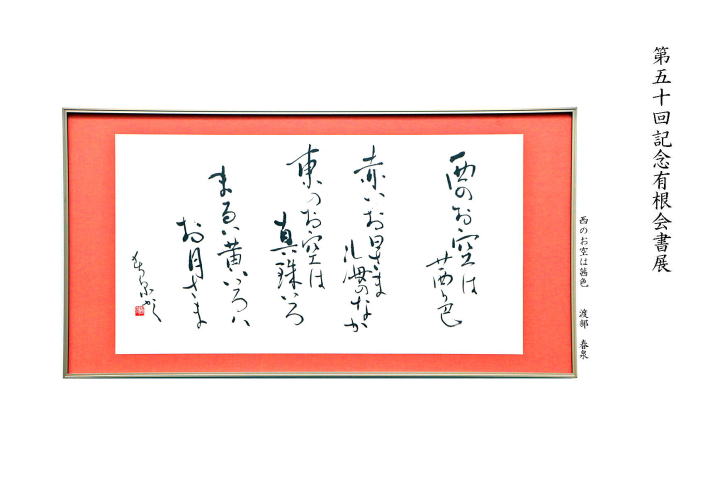 第五十回記念有根会書展
西のお空は茜色 渡部 春泉
西のお空は
茜色
赤いお日さま
海のなか
東のお空は
真珠いろ
まるい黄いろい
お月さま
春泉かく